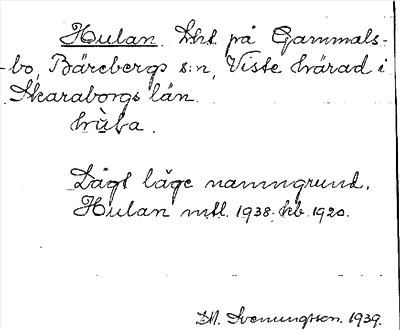 Hulan. Lht på Gammals-
bo, Bärebergs s:n, Viste härad i
Skaraborgs län.
hùla.
Lågt läge namngrund.
Hulan mtl. 1938. hb. 1920.
D.A. Svenungsson. 1939.